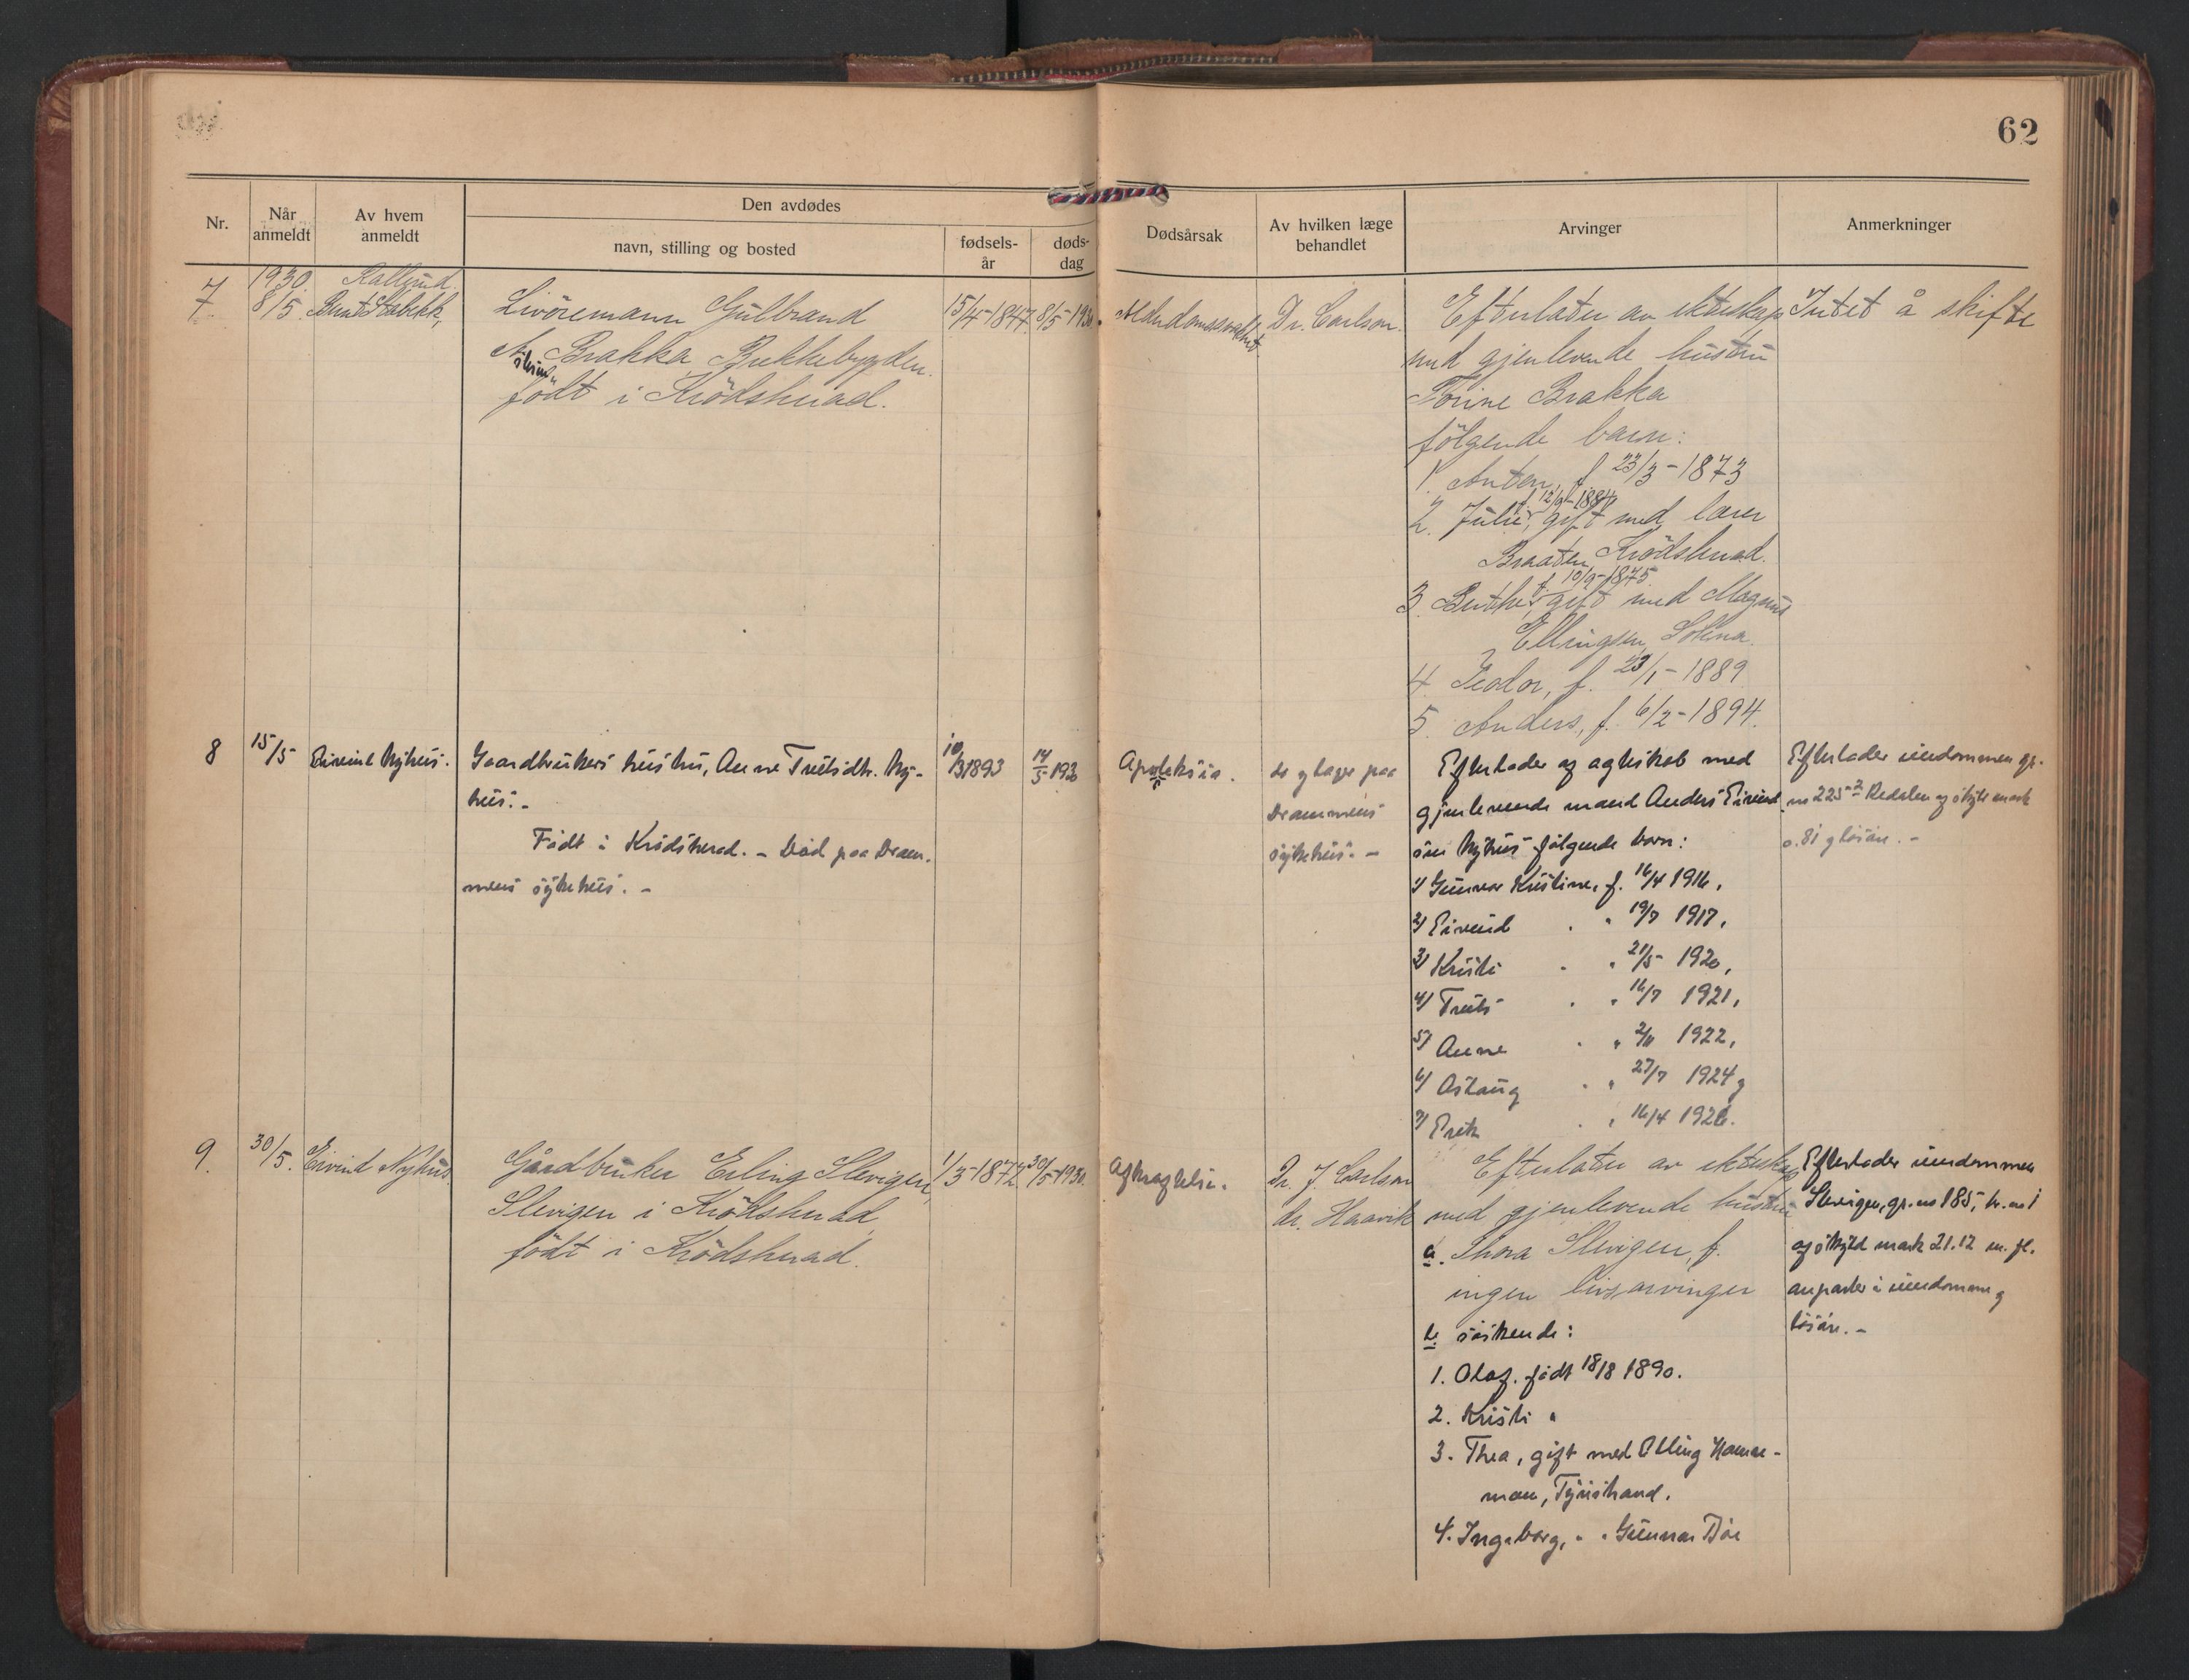 62
Nr.
Når anmeldt
Av hvem anmeldt
Den avdødes
navn, stilling og bosted
fødsels-år
døds-dag
Dødsårsak
Av hvilken læge behandlet
Arvinger
Anmerkninger
7
1930.
8/5
Livöremann Gulbrand
Brakka
födt i Krödsherad.
15/4-1847
8/5-1930.
Alderdomssvakhet
Dr. Carlson.
Efterlater av ekteskap
med gjenlevende hustru
Torine Brakka
følgende barn:
1. Anton, f 23/3-1873
2. Julie, f 12/9-1884 gift med lærer
Braaten, Krödsherad.
3 Berthe, f 10/9-1875. gift med Magnus
Ellingsen, Sokna.
4. Teodor, f. 23/1-1889
5. Anders, f. 6/2-1894.
Intet å skifte
8
15/5
Eivind Nyhus.
Gaardbrukers hustru, Anne Trulsdtr. Ny-
hus. -
Födt i Krødsherad. - Død paa Dram-
mens sykehus. -
10/3 1893
14/5-1930
Apopleksia.
læger paa
Drammens
sykehus. -
Efterlader af egteskab med
gjenlevende mand Anders Eivind
søn Nyhus følgende barn:
1) Gunvor Kristine, f. 16/4 1916,
2) Eivind " " 19/7 1917,
3) Kristi " " 21/5 1920,
4) Truls " " 16/7 1921,
5) Anne " " 2/11 1922,
6) Aslaug " " 27/7 1924 og
7) Erik " " 16/4 1926.
Efterlader eiendommen gr.
no 225 af skyld mark
o.81 og løsøre. -
9.
30/5.
Eivind Nyhus
Gårdbruker Erling Slevigen,
Slevigen i Krödsherad,
födt i Krödsherad.
1/3-1872
30/5-1930.
Afkræftelse.
Dr. J. Carlson
dr. Haavik
Efterlater av ekteskap
med gjenlevende hustru
a. Thora Slevigen, f.
ingen livsarvinger
b. søskende:
1. Olaf. født 18/8 1890.
2. Kristi "
3. Thea, gift med Elling Hamre-
moen, Tyristrand.
4. Ingeborg, " " Gunnar Bøe
Efterlader eiendommen
Slevigen, gr. no 185, br. no 1
af skyld mark 21.12 m. fl.
anparter i eiendomme og
løsøre. -